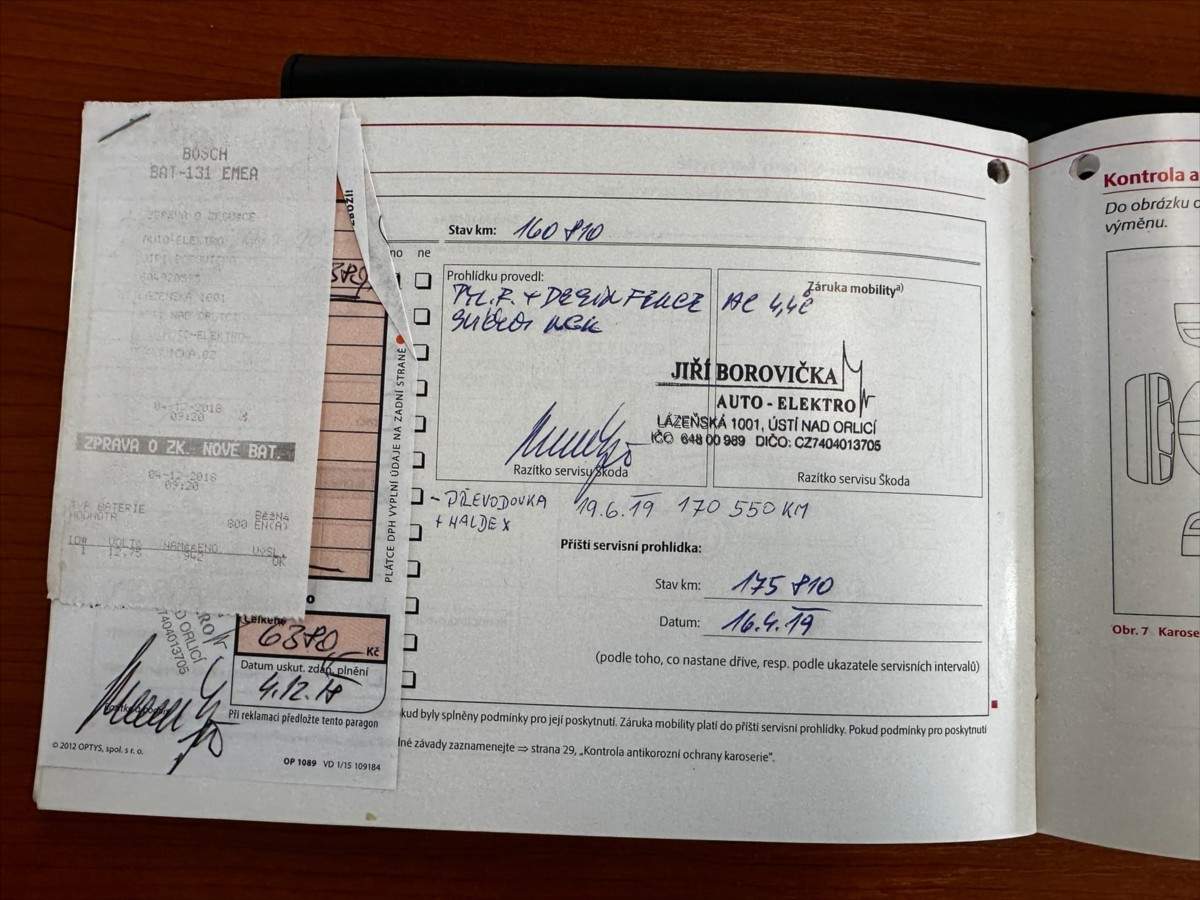 BOSCH
BAT-131 EMEA
AUTO-ELEKTRO
LÁZEŇSKÁ 1001
04-12-2018
09:20
ZPRAVA O ZK. NOVE BAT.
04-12-2018
09:20
TYP BATERIE BĚŽNÁ
HODNOTA 800 EN(A)
ID# VOLTŮ NAMĚŘENO VÝSL.
1 12.75 942 OK
PLÁTCE DPH VYPLNÍ ÚDAJE NA ZADNÍ STRANĚ
Celkem
6380 Kč
Datum uskut. zdan. plnění
4.12.18
Při reklamaci předložte tento paragon
© 2012 OPTYS, spol. s r. o.
OP 1089 VD 1/15 109184
no ne
Stav km: 160 810
Prohlídku provedl:
Záruka mobility a)
JIŘÍ BOROVIČKA
AUTO - ELEKTRO
LÁZEŇSKÁ 1001, ÚSTÍ NAD ORLICÍ
IČO 648 00 989 DIČO: CZ7404013705
Razítko servisu Škoda
Razítko servisu Škoda
- PŘEVODOVKA 19.6.19 170 550 KM
+ HALDEX
Příští servisní prohlídka:
Stav km: 175 810
Datum: 16.4.19
(podle toho, co nastane dříve, resp. podle ukazatele servisních intervalů)
kud byly splněny podmínky pro její poskytnutí. Záruka mobility platí do příští servisní prohlídky. Pokud podmínky pro poskytnutí
lné závady zaznamenejte ⇒ strana 29, „Kontrola antikorozní ochrany karoserie“.
Kontrola a
Do obrázku
výměnu.
Obr. 7 Karose